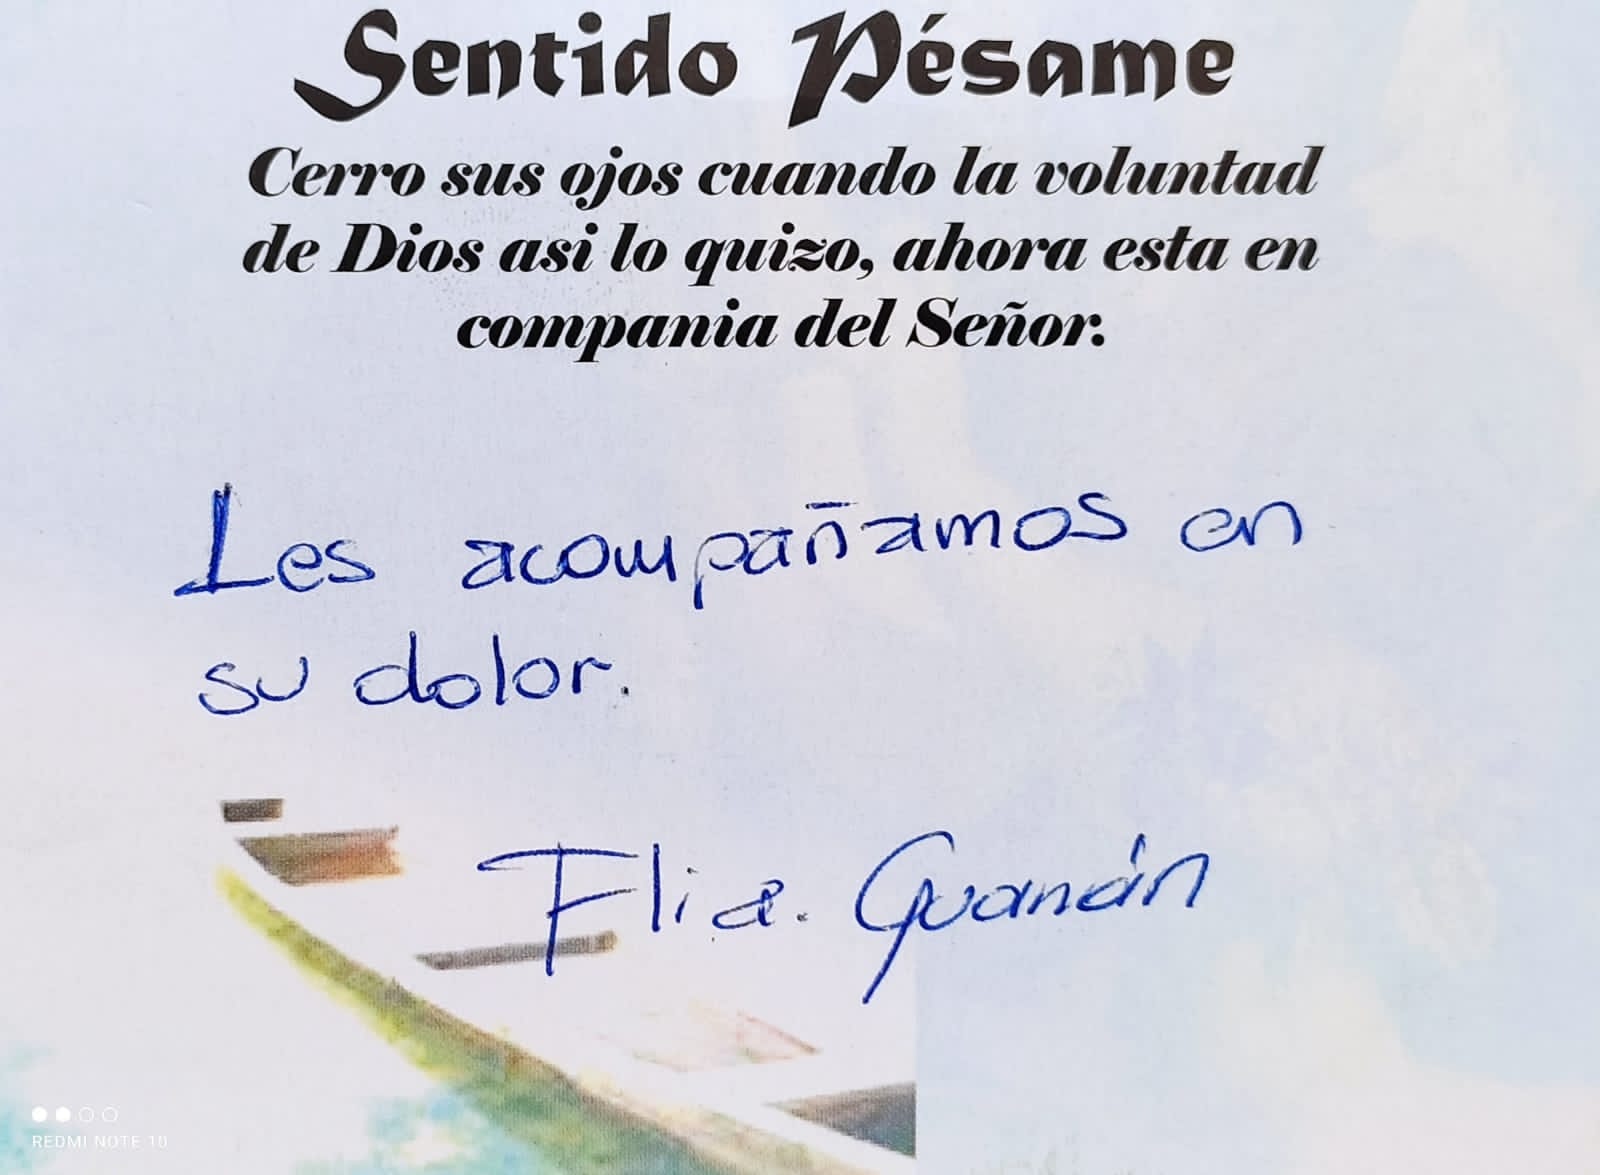 Sentido Pésame
Cerro sus ojos cuando la voluntad
de Dios asi lo quizo, ahora esta en
compania del Señor.
Les acompañamos en
su dolor.
Flia. Guanán
REDMI NOTE 10